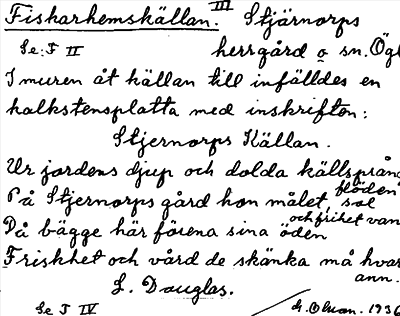 Fiskarhemskällan. III Stjärnorps
Se: F II herrgård o sn. Ögl
I muren åt källan till infälldes en
kalkstensplatta med inskriften:
Stjernorps Källan.
Ur jordens djup och dolda källsprång
flöden
På Stjernorps gård hon målet, sol
och frihet vann
Då bägge här förena sina öden
Friskhet och vård de skänka må hvar
ann.
L. Douglas.
Se F IV 1936